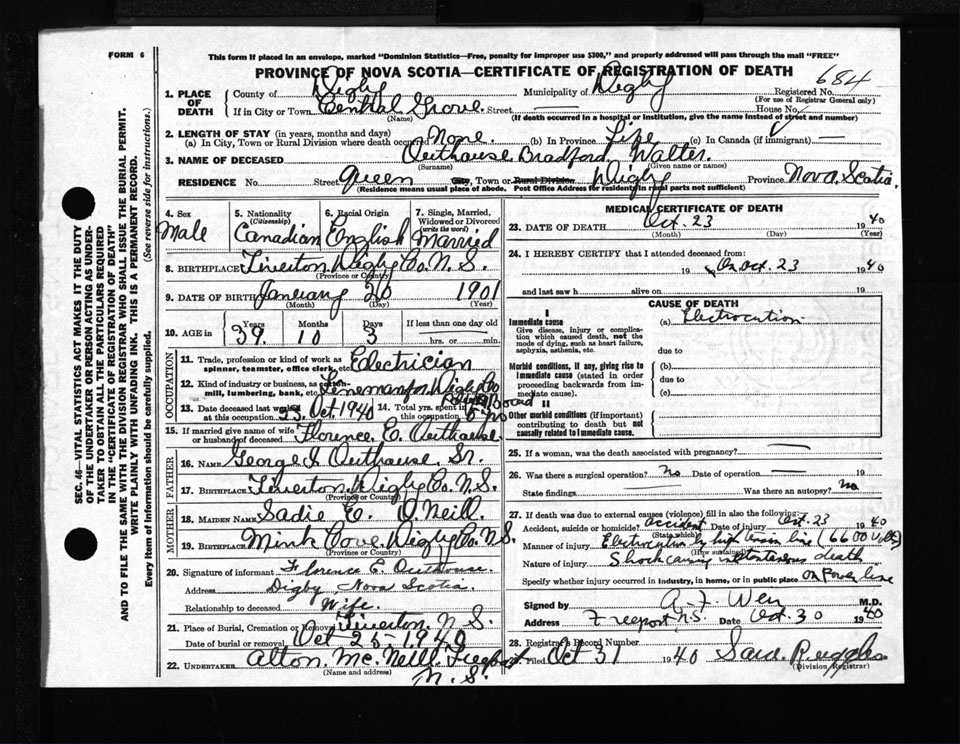 FORM 6
This form if placed in an envelope, marked "Dominion Statistics—Free, penalty for improper use $300," and properly addressed will pass through the mail "FREE"
PROVINCE OF NOVA SCOTIA—CERTIFICATE OF REGISTRATION OF DEATH
684
1. PLACE OF DEATH County of Digby Municipality of Digby Registered No.
(For use of Registrar General only)
If in City or Town Central Grove Street — House No.
(Name) (If death occurred in a hospital or institution, give the name instead of street and number)
2. LENGTH OF STAY (in years, months and days)
(a) In City, Town or Rural Division where death occurred None (b) In Province Life (c) In Canada (if immigrant) —
3. NAME OF DECEASED Outhouse Bradford Walter.
(Surname) (Given name or names)
RESIDENCE No. Street Queen City, Town or Rural Division Digby Province Nova Scotia
(Residence means usual place of abode. Post Office Address for residents in rural parts not sufficient)
4. Sex Male
5. Nationality (Citizenship) Canadian
6. Racial Origin English
7. Single, Married, Widowed or Divorced (write the word) Married
8. BIRTHPLACE Tiverton Digby Co. N.S.
(Province or Country)
9. DATE OF BIRTH January 20 1901
(Month) (Day) (Year)
10. AGE in Years 39 Months 10 Days 3 If less than one day old
hrs. or min.
OCCUPATION
11. Trade, profession or kind of work as spinner, teamster, office clerk, etc. Electrician
12. Kind of industry or business, as cotton-mill, lumbering, bank, etc. Lineman for Digby Co
Board
13. Date deceased last worked at this occupation 23 Oct. 1940 14. Total yrs. spent in this occupation
15. If married give name of wife or husband of deceased Florence E. Outhouse
FATHER
16. NAME George I. Outhouse Sr.
17. BIRTHPLACE Tiverton Digby Co. N.S.
(Province or Country)
MOTHER
18. MAIDEN NAME Sadie E. O'Neill.
19. BIRTHPLACE Mink Cove Digby Co. N.S.
(Province or Country)
20. Signature of informant Florence E. Outhouse
Address Digby Nova Scotia
Relationship to deceased Wife.
21. Place of Burial, Cremation or Removal Tiverton, N.S.
Date of burial or removal Oct 25 - 1940
22. UNDERTAKER Alton McNeill Freeport
(Name and address) N.S.
MEDICAL CERTIFICATE OF DEATH
23. DATE OF DEATH Oct. 23 1940
(Month) (Day) (Year)
24. I HEREBY CERTIFY that I attended deceased from:
19 On Oct. 23 1940
and last saw h alive on 19
CAUSE OF DEATH
I
Immediate cause (a) Electrocution
Give disease, injury or complication which caused death, not the mode of dying, such as heart failure, asphyxia, asthenia, etc.
due to
Morbid conditions, if any, giving rise to immediate cause (stated in order proceeding backwards from immediate cause). (b)
due to
(c)
II
Other morbid conditions (if important) contributing to death but not causally related to immediate cause.
25. If a woman, was the death associated with pregnancy? —
26. Was there a surgical operation? No Date of operation — 19
State findings Was there an autopsy? No
27. If death was due to external causes (violence) fill in also the following:
Accident, suicide or homicide? accident Date of injury Oct. 23 1940
(State which)
Manner of injury Electrocution by high tension line (6600 Volts)
(How sustained)
Nature of injury Shock causing instantaneous death
Specify whether injury occurred in industry, in home, or in public place on Power line
Signed by M.D.
Address Freeport N.S. Date Oct. 30 1940
28. Registrar's Record Number
Filed Oct 31 1940 Ruggles
(Division Registrar)
SEC. 46—VITAL STATISTICS ACT MAKES IT THE DUTY
OF THE UNDERTAKER OR PERSON ACTING AS UNDER-
TAKER TO OBTAIN ALL THE PARTICULARS REQUIRED
IN THE "CERTIFICATE OF REGISTRATION OF DEATH"
AND TO FILE THE SAME WITH THE DIVISION REGISTRAR WHO SHALL ISSUE THE BURIAL PERMIT.
WRITE PLAINLY WITH UNFADING INK. THIS IS A PERMANENT RECORD.
Every item of information should be carefully supplied. (See reverse side for instructions.)